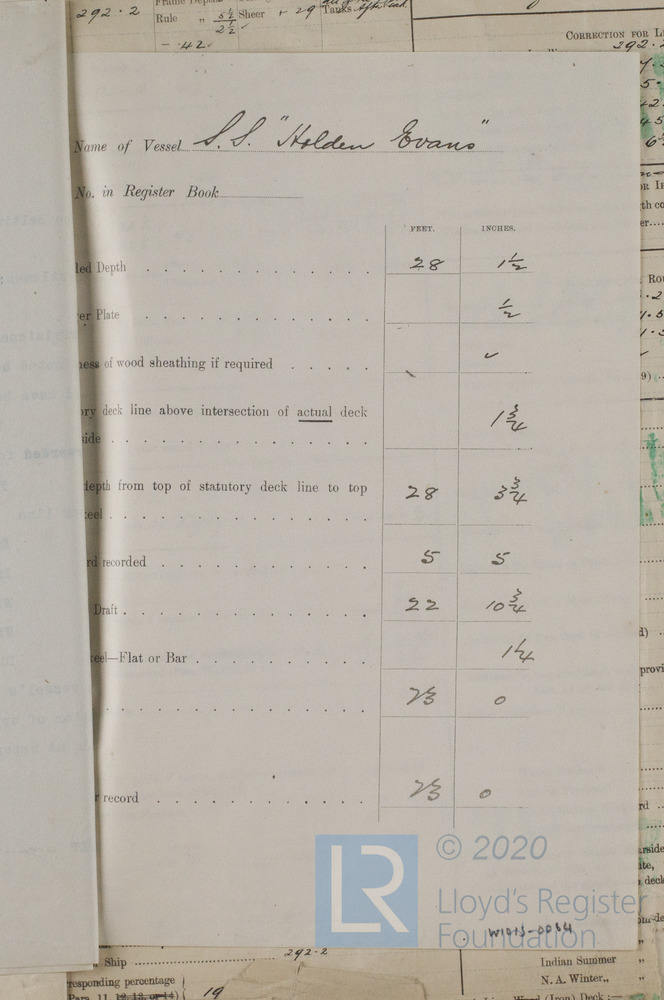 292.2
Rule „ 5½ Sheer + 29 Tanks
2½
- 42
CORRECTION FOR
292.
Name of Vessel S.S. "Holden Evans"
No. in Register Book
FEET. INCHES.
led Depth 28 1½
er Plate ½
ness of wood sheathing if required ✓
ory deck line above intersection of actual deck
side 1¾
depth from top of statutory deck line to top
eel 28 3¾
rd recorded 5 5
Draft 22 10¾
eel—Flat or Bar 1¼
23 0
record 23 0
LR © 2020
Lloyd's Register
Foundation
W1013-0064
Ship 292-2
Indian Summer „
responding percentage
N.A. Winter,, „
19